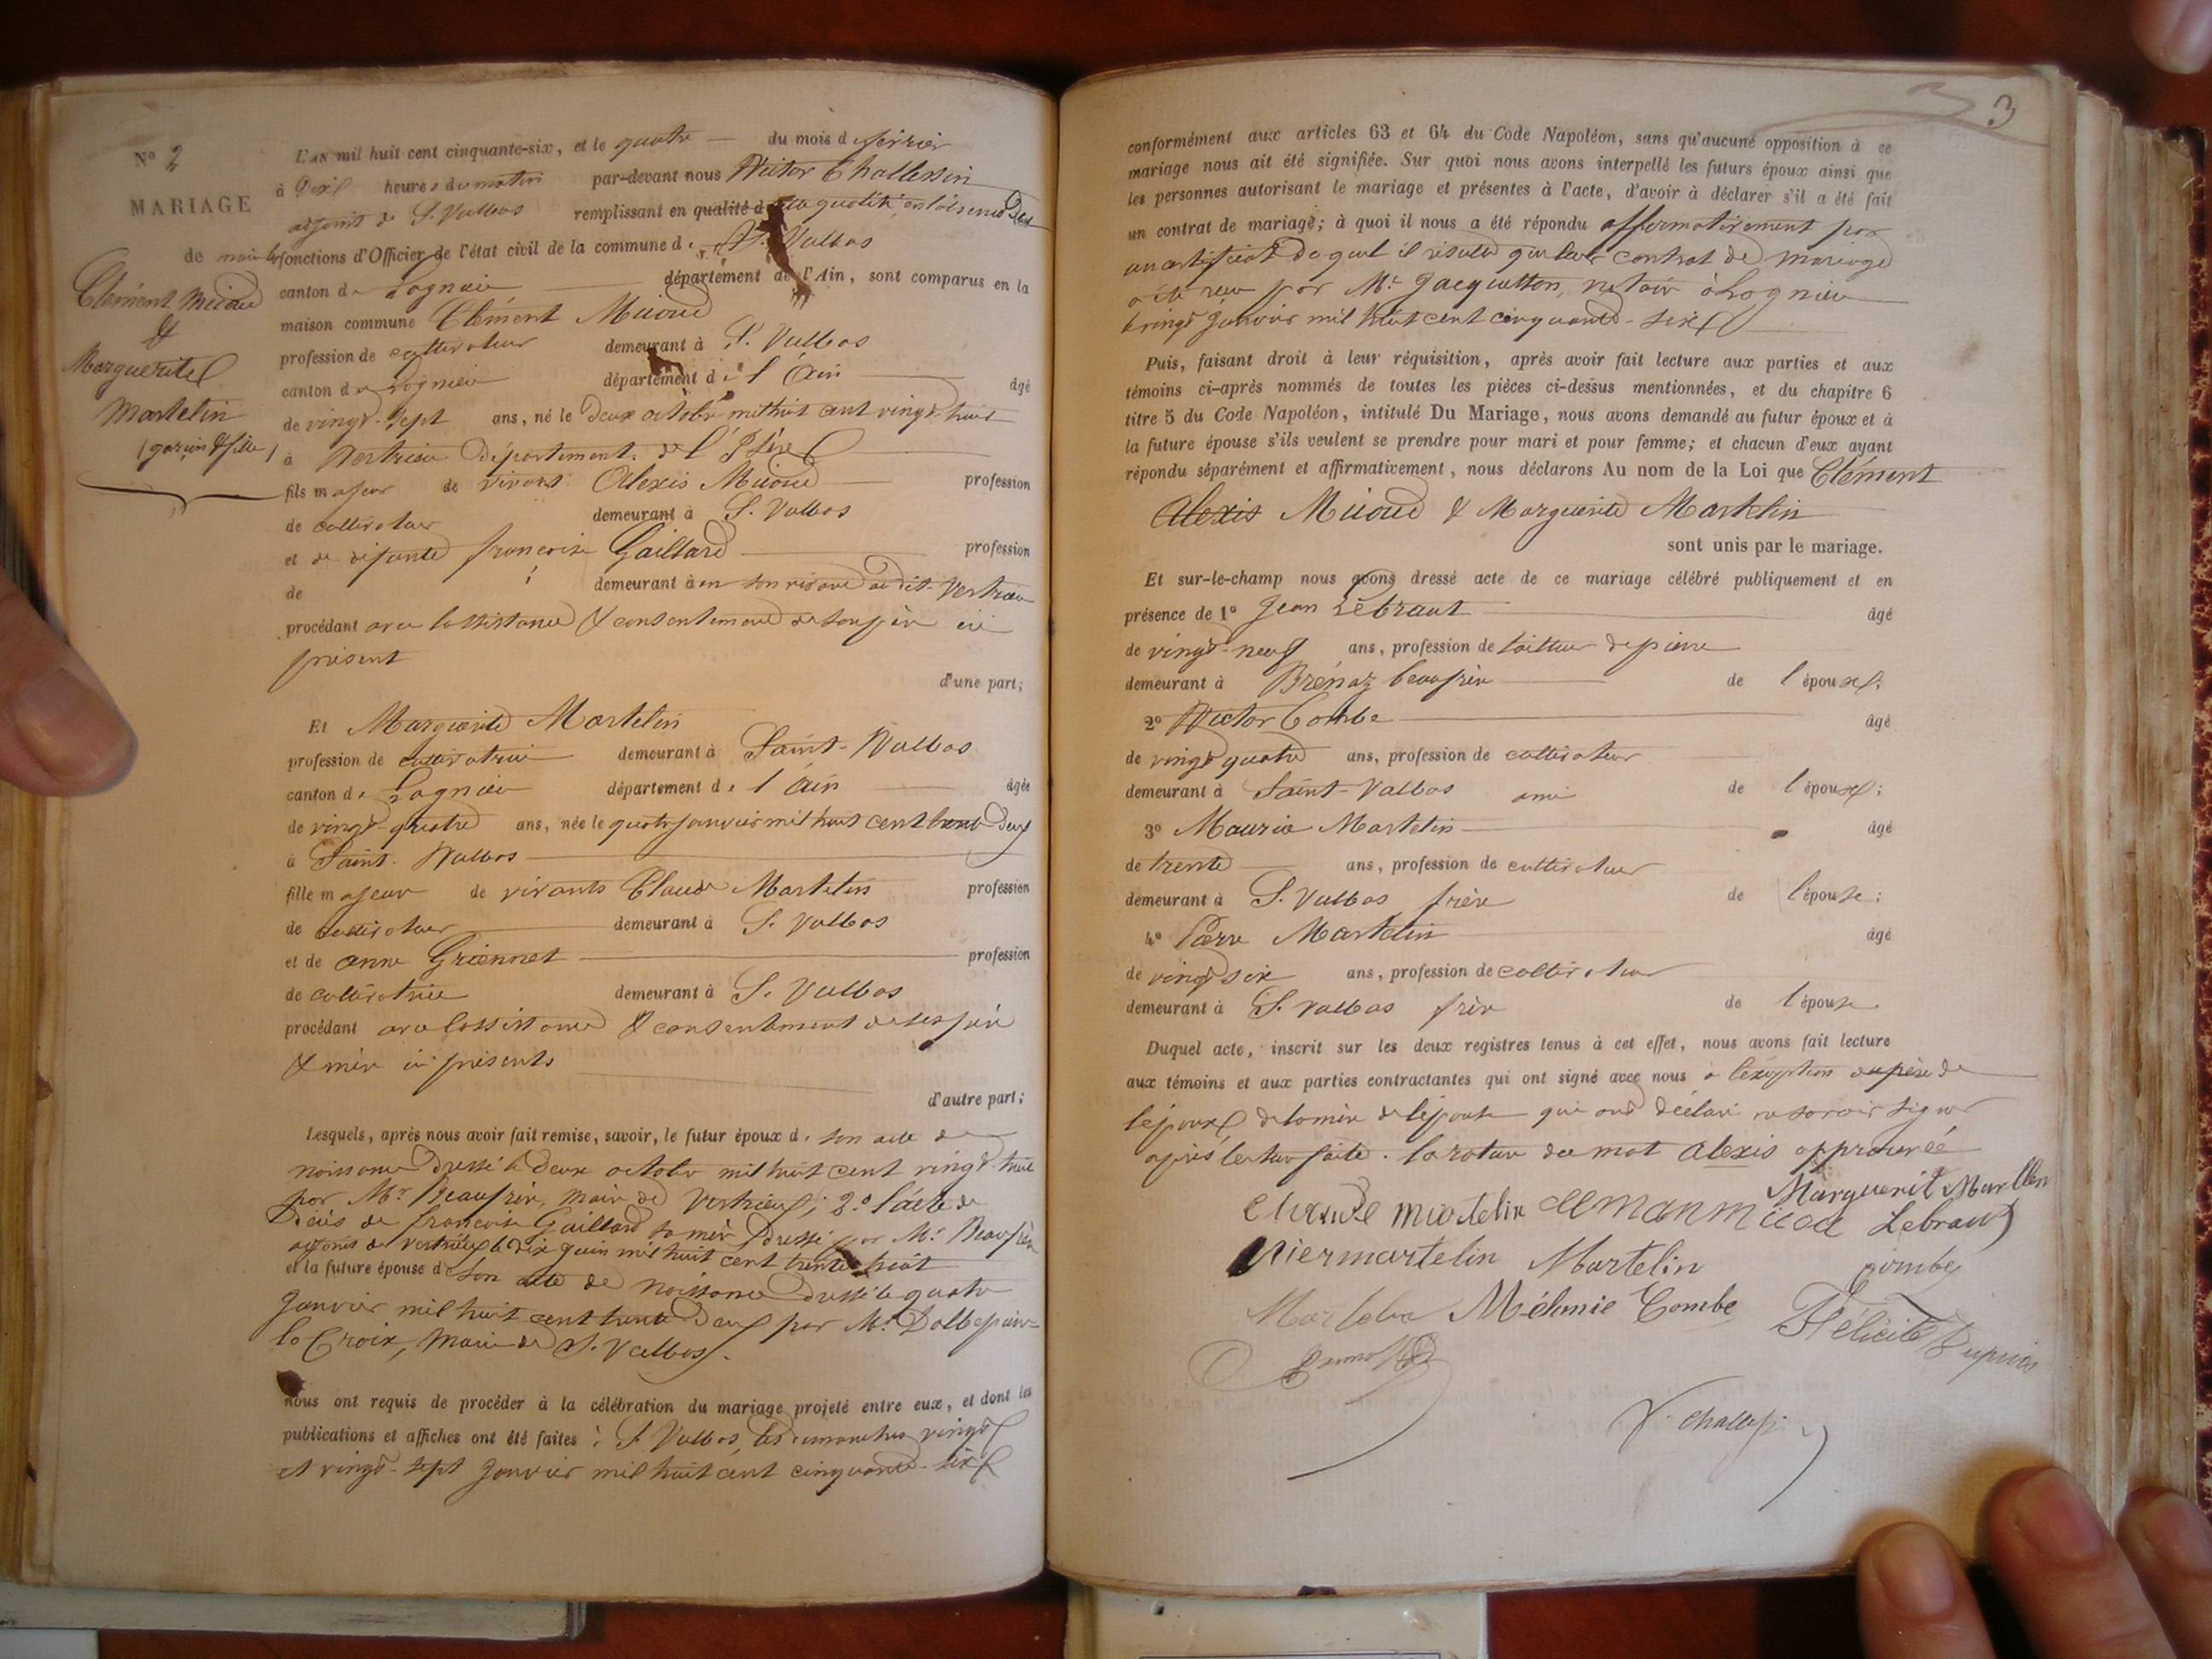 N° 2
MARIAGE
de
Clément Mioud
&
Marguerite
Martelin
(garçon & fille)
L'AN mil huit cent cinquante-six, et le quatre du mois de février
à dix heures du matin par-devant nous Victor Challessin
adjoint de St. Vulbas remplissant en qualité d
fonctions d'Officier de l'état civil de la commune de St. Vulbas
canton de Lagnieu département de l'Ain, sont comparus en la
maison commune Clément Miioud
profession de cultivateur demeurant à St. Vulbas
canton de Lagnieu département de l'Ain âgé
de vingt-sept ans, né le deux octobre mil huit cent vingt-huit
à Vertrieu département de l'Isère
fils majeur de vivant Alexis Miioud profession
de cultivateur demeurant à St. Vulbas
et de défunte françoise Gaillard profession
de demeurant à en son vivant audit Vertrieu
procédant avec l'assistance & consentement de son père ici
présent
d'une part;
Et Marguerite Martelin
profession de cultivatrice demeurant à Saint-Vulbas
canton de Lagnieu département de l'Ain âgée
de vingt-quatre ans, née le quatre janvier mil huit cent trente deux
à Saint-Vulbas
fille majeure de vivants Claude Martelin profession
de cultivateur demeurant à St. Vulbas
et de anne Griennet profession
de cultivatrice demeurant à St. Vulbas
procédant avec l'assistance & consentement de ses père
& mère ici présents
d'autre part;
Lesquels, après nous avoir fait remise, savoir, le futur époux de son acte de
naissance dressé le deux octobre mil huit cent vingt huit
par Mr Beaufrère, maire de Vertrieu; 2° l'acte de
décès de françoise Gaillard sa mère dressé par Mr Beaufrère
adjoint de Vertrieu le dix juin mil huit cent trente huit
et la future épouse de son acte de naissance dressé le quatre
janvier mil huit cent trente deux par Mr
la Croix, Maire de St. Vulbas.
nous ont requis de procéder à la célébration du mariage projeté entre eux, et dont les
publications et affiches ont été faites à St Vulbas, les dimanches vingt
et vingt-sept janvier mil huit cent cinquante-six
3
conformément aux articles 63 et 64 du Code Napoléon, sans qu'aucune opposition à ce
mariage nous ait été signifiée. Sur quoi nous avons interpellé les futurs époux ainsi que
les personnes autorisant le mariage et présentes à l'acte, d'avoir à déclarer s'il a été fait
un contrat de mariage; à quoi il nous a été répondu affirmativement par
un certificat duquel il résulte que leur contrat de mariage
a été reçu par Me Jacquetton, notaire à Lagnieu
le vingt janvier mil huit cent cinquante-six
Puis, faisant droit à leur réquisition, après avoir fait lecture aux parties et aux
témoins ci-après nommés de toutes les pièces ci-dessus mentionnées, et du chapitre 6
titre 5 du Code Napoléon, intitulé Du Mariage, nous avons demandé au futur époux et à
la future épouse s'ils veulent se prendre pour mari et pour femme; et chacun d'eux ayant
répondu séparément et affirmativement, nous déclarons Au nom de la Loi que Clément
Alexis Miioud & Marguerite Martelin
sont unis par le mariage.
Et sur-le-champ nous avons dressé acte de ce mariage célébré publiquement et en
présence de 1° Jean Lebraut âgé
de vingt-neuf ans, profession de tailleur de pierre
demeurant à Brénaz beaufrère de l'époux;
2° Victor Combe âgé
de vingt quatre ans, profession de cultivateur
demeurant à Saint-Vulbas ami de l'époux;
3° Maurice Martelin âgé
de trente ans, profession de cultivateur
demeurant à St. Vulbas frère de l'épouse;
4° Pierre Martelin âgé
de vingt six ans, profession de cultivateur
demeurant à St. Vulbas frère de l'épouse.
Duquel acte, inscrit sur les deux registres tenus à cet effet, nous avons fait lecture
aux témoins et aux parties contractantes qui ont signé avec nous à l'exception du père de
l'époux de la mère de l'épouse qui ont déclaré ne savoir signer
après lecture faite. la rature du mot Alexis approuvée
Marguerit Martelin
Claude martelin Miioud Lebraut
Piermartelin Martelin Combe
Mélanie Combe Félicité Dupuis
V. Challess